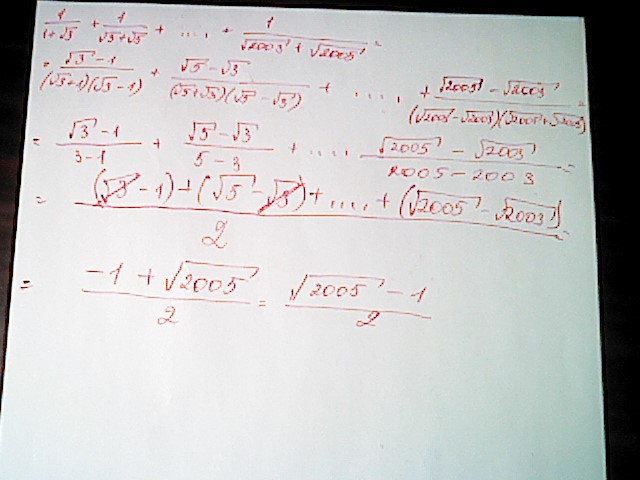 1/(1+√3) + 1/(√3+√5) + ...., + 1/(√2003 + √2005) =
= (√3 - 1)/((√3+1)(√3-1)) + (√5 - √3)/((√5+√3)(√5 - √3)) + ...., + (√2005 - √2003)/((√2005 - √2003)(√2005+√2003)) =
= (√3 - 1)/(3 - 1) + (√5 - √3)/(5 - 3) + .... (√2005 - √2003)/(2005 - 2003) =
= ((√3 - 1) + (√5 - √3) + ...., + (√2005 - √2003))/2 =
= (-1 + √2005)/2 = (√2005 - 1)/2